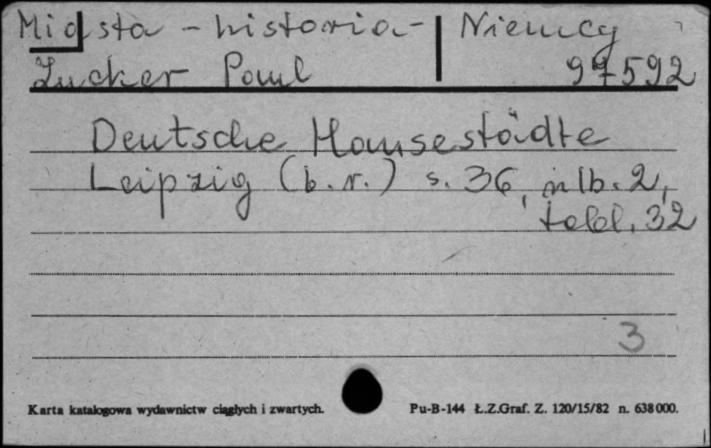 Miasta - historia - Niemcy
Zucker Paul 97592
Deutsche Hansestädte
Leipzig (b.r.) s. 36, nlb. 2,
tabl. 32
3
Karta katalogowa wydawnictw ciągłych i zwartych. Pu-B-144 Ł.Z.Graf. Z. 120/15/82 n. 638000.